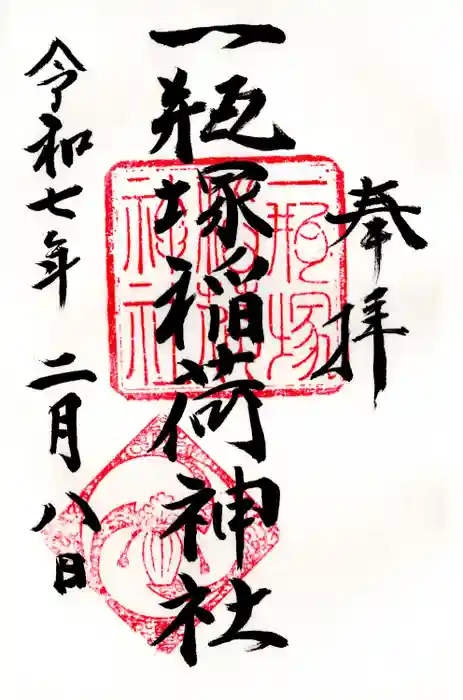 奉拝
一瓶塚稲荷神社
令和七年 二月八日
一瓶塚
稲荷
神社